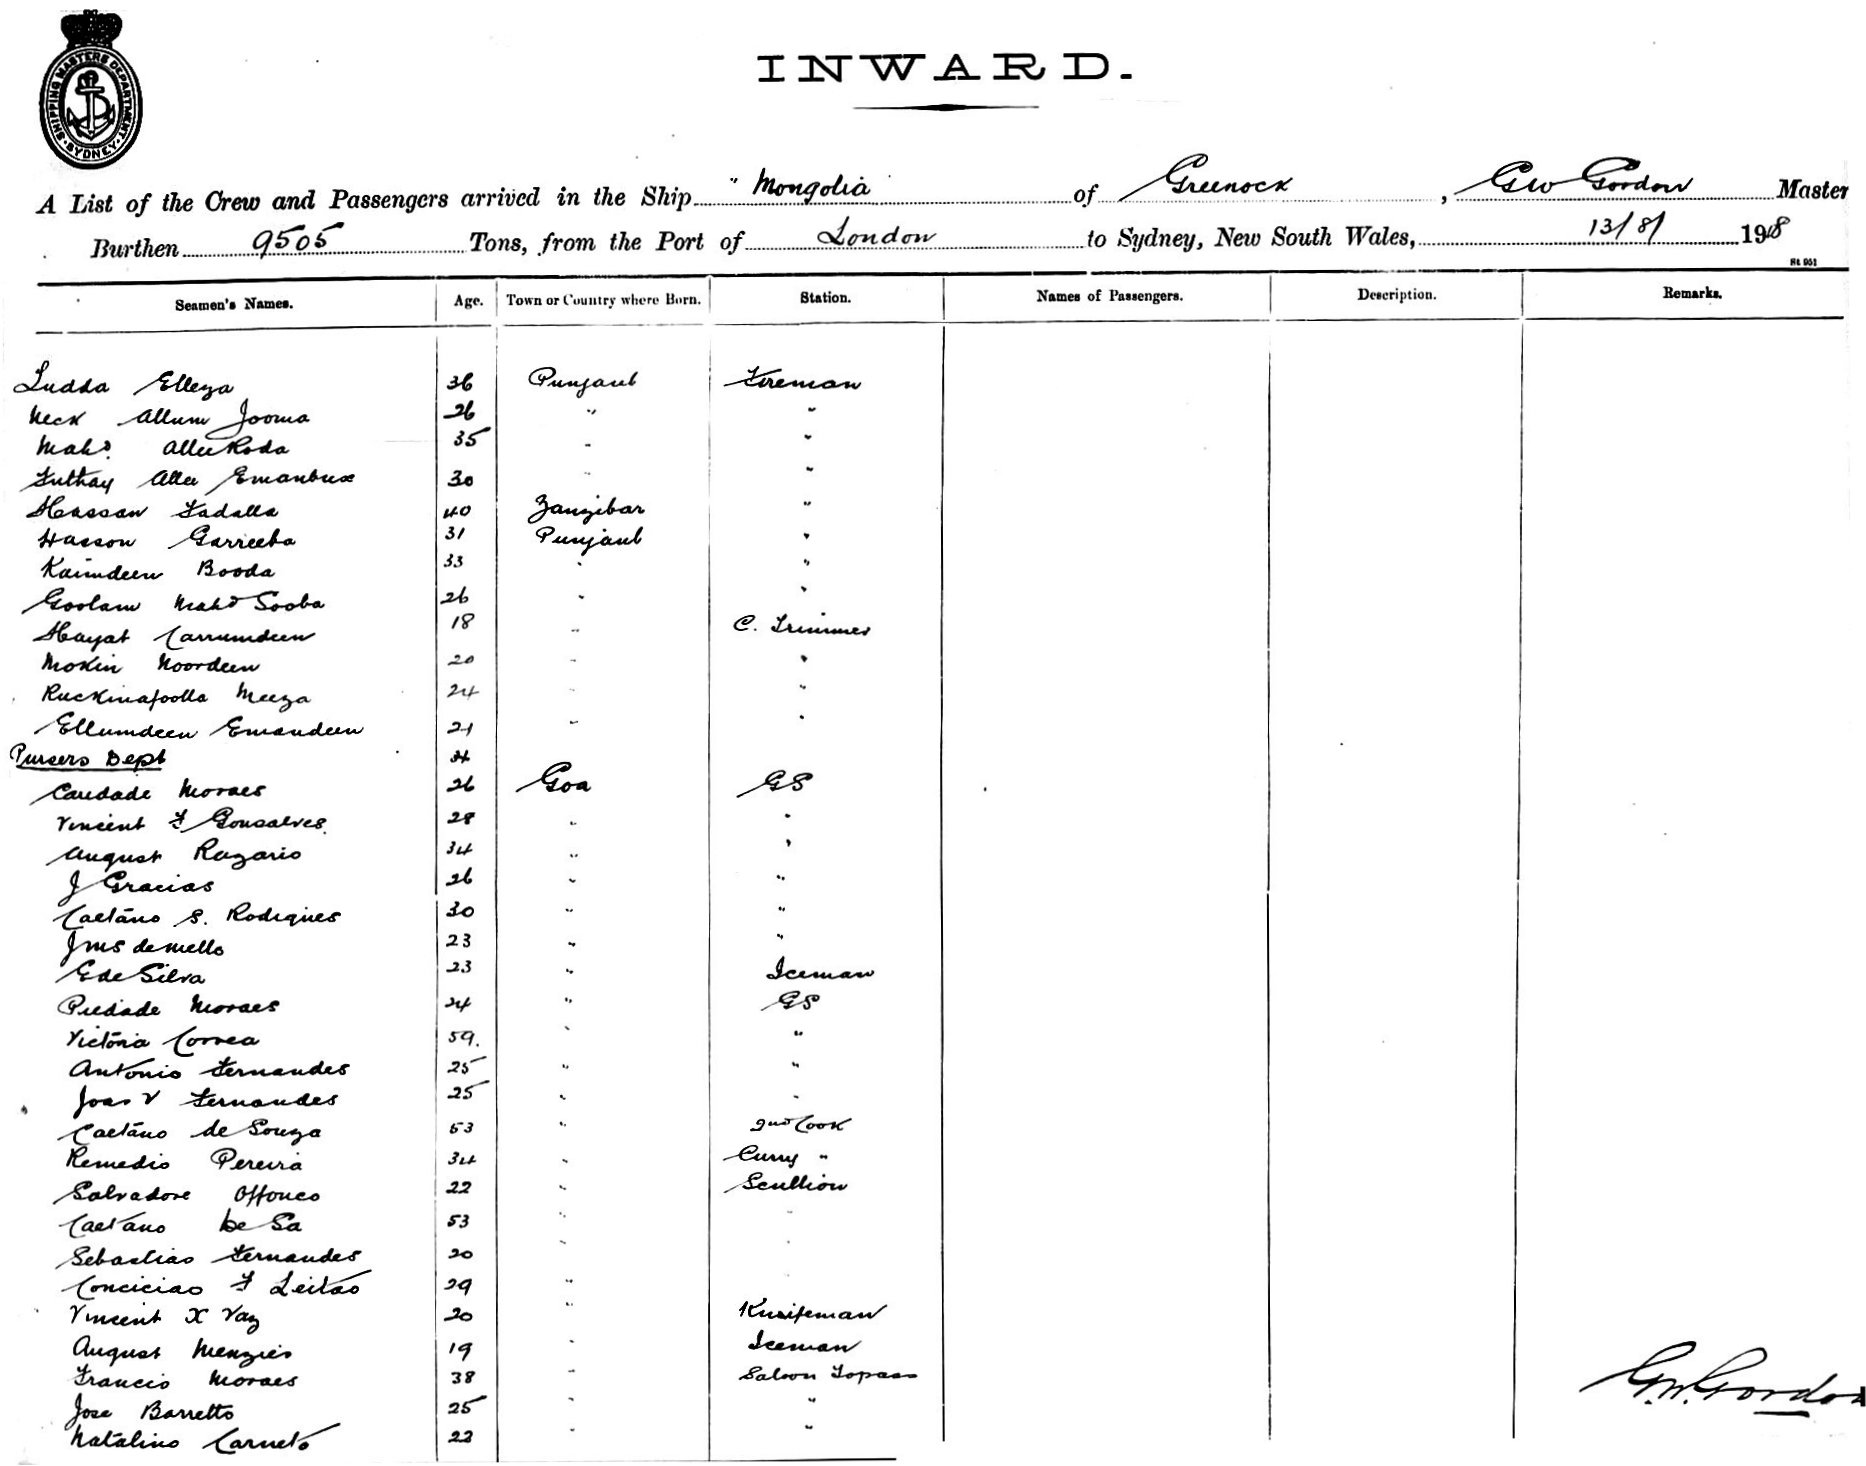 SHIPPING MASTERS DEPARTMENT · SYDNEY ·
INWARD.
A List of the Crew and Passengers arrived in the Ship "Mongolia of Greenock, GW Gordon Master
Burthen 9505 Tons, from the Port of London to Sydney, New South Wales, 13/8/ 1908
St 951
Seamen's Names. Age. Town or Country where Born. Station. Names of Passengers. Description. Remarks.
Ludda Elleya 36 Punjaub Fireman
Neck Allum Jooma 26 " "
Mahd. Allee Roda 35 " "
Futhay Allee Emanbux 30 " "
Hassan Fadalla 40 Zanzibar "
Hasson Garreeba 31 Punjaub "
Kaimdeen Booda 33 " "
Goolam Mahd Sooba 26 " "
Hayat Carrumdeen 18 " C. Trimmer
Mokin Noordeen 20 " "
Ruckinapoolla Meeza 24 " "
Ellumdeen Emandeen 21 " "
Pursers Dept
Caridade Moraes 26 Goa GS
Vincent F Gonsalves 28 " "
August Razario 34 " "
J Gracias 26 " "
Caetano S. Rodrigues 30 " "
Jms de Mello 23 " "
E de Silva 23 " Iceman
Piedade Moraes 24 " GS
Victoria Correa 59. " "
Antonio Fernandes 25 " "
Joao V Fernandes 25 " "
Caetano de Souza 53 " 2nd Cook
Remedio Pereira 34 " Curry "
Salvadore Affonco 22 " Scullion
Caetano De Sa 53 " "
Sebastiao Fernandes 20 " "
Conciciao F Leitao 29 " "
Vincent X Vaz 20 " Knifeman
August Menzies 19 " Iceman
Francis Moraes 38 " Saloon Topass
Jose Barretto 25 " "
Natalino Carneto 22 " "
G.W. Gordon